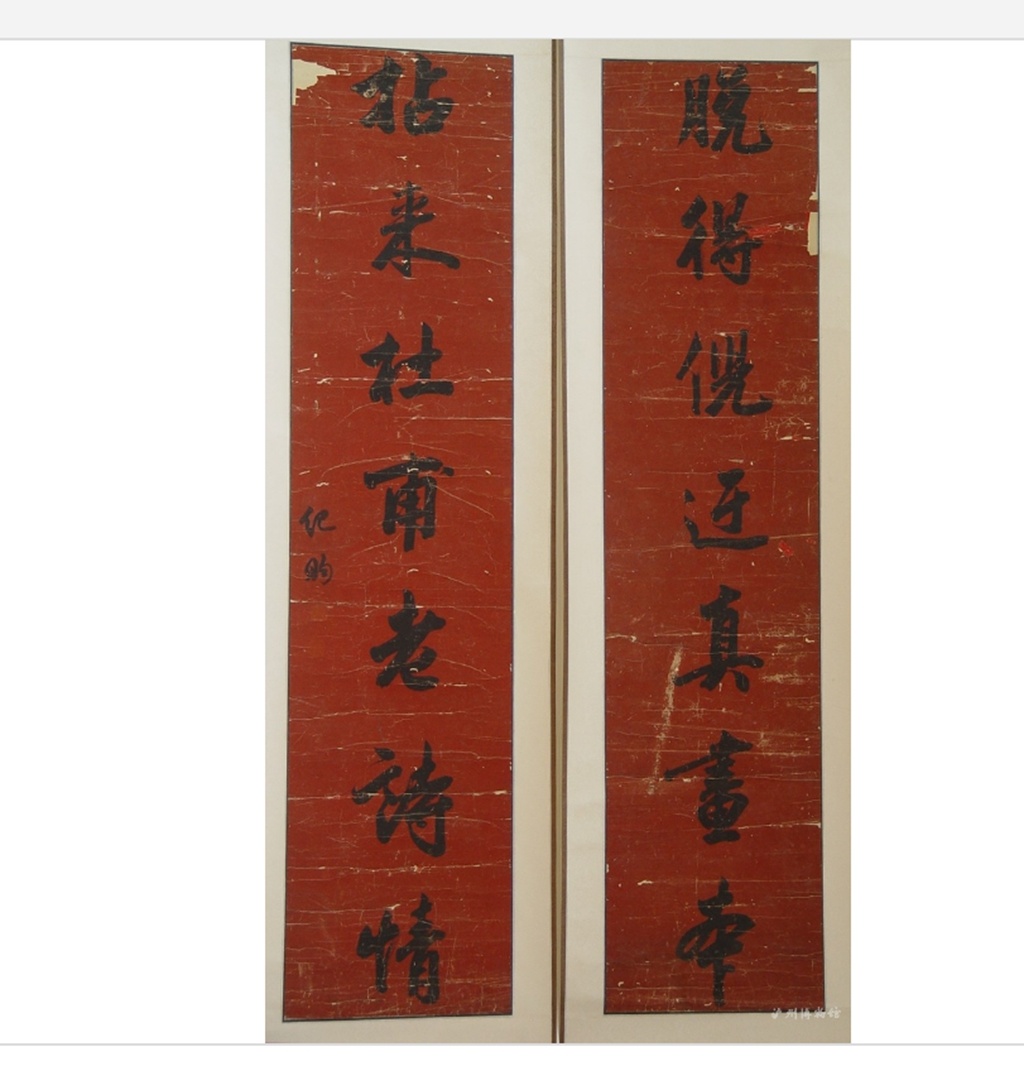 脱得倪迂真畫本
拈来杜甫老詩情
紀昀
泸州博物馆